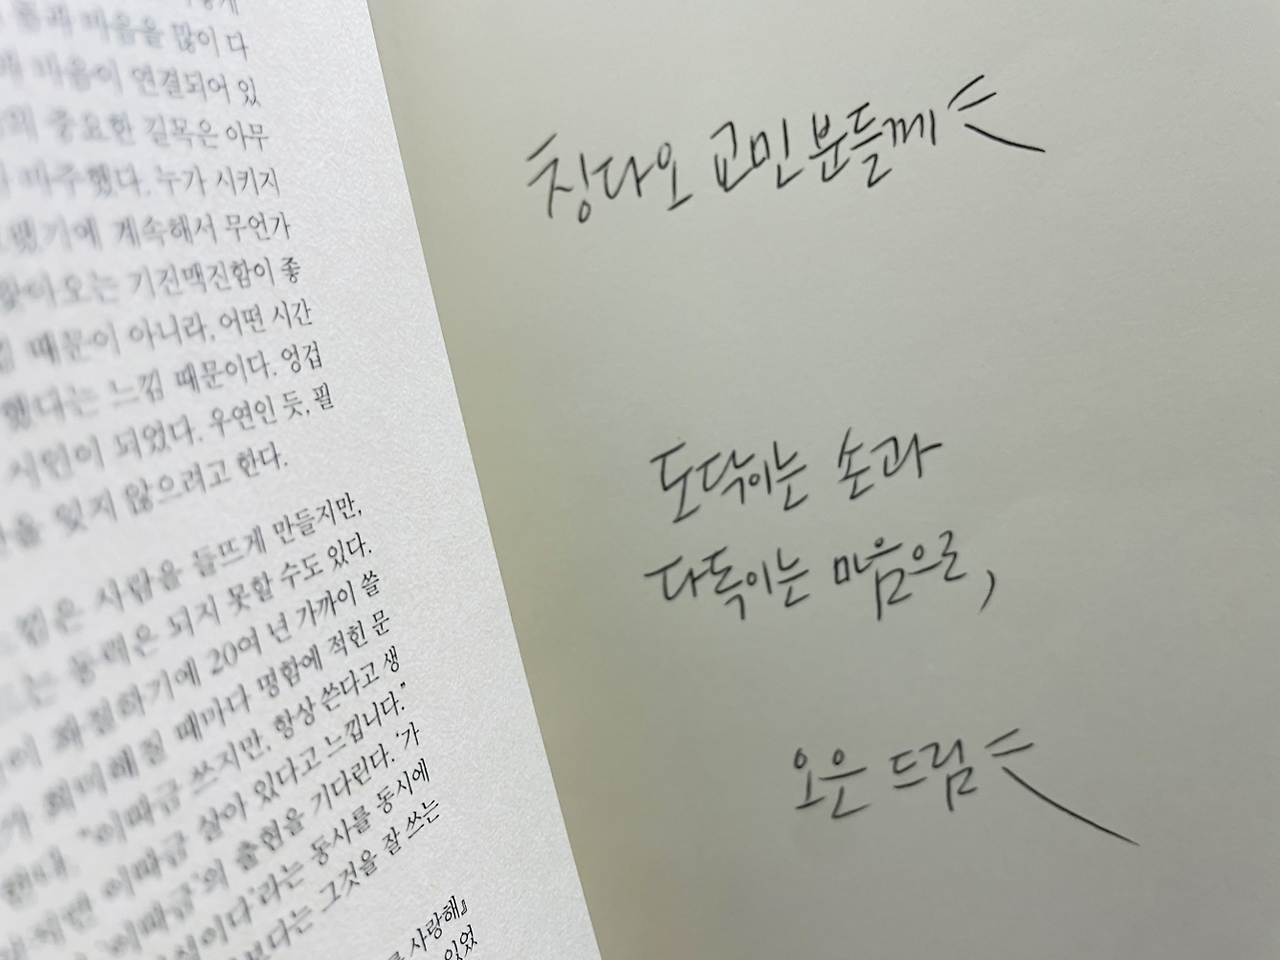 마음을 많이 다
마음이 연결되어 있
중요한 길목은 아무
마주했다. 누가 시키지
했기에 계속해서 무언가
찾아오는 기진맥진함이 좋
때문이 아니라, 어떤 시간
했다는 느낌 때문이다. 엉겁
시인이 되었다. 우연인 듯, 필
잊지 않으려고 한다.
사람을 들뜨게 만들지만,
동력은 되지 못할 수도 있다.
20여 년 가까이 쓸
희미해질 때마다 명함에 적힌 문
"이따금 쓰지만, 항상 쓴다고 생
이따금 살아 있다고 느낍니다."
'이따금'의 출현을 기다린다. '가
라는 동사를 동시에
보다는 그것을 잘 쓰는
사랑해』
있었
칭다오 교민분들께
도닥이는 손과
다독이는 마음으로,
오은 드림